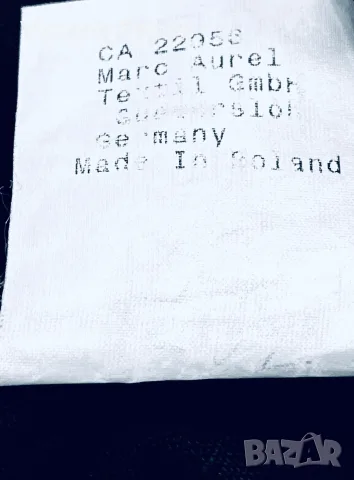 CA 22956
Marc Aurel
Textil GmbH
Germany
Made In Poland
BAZAR